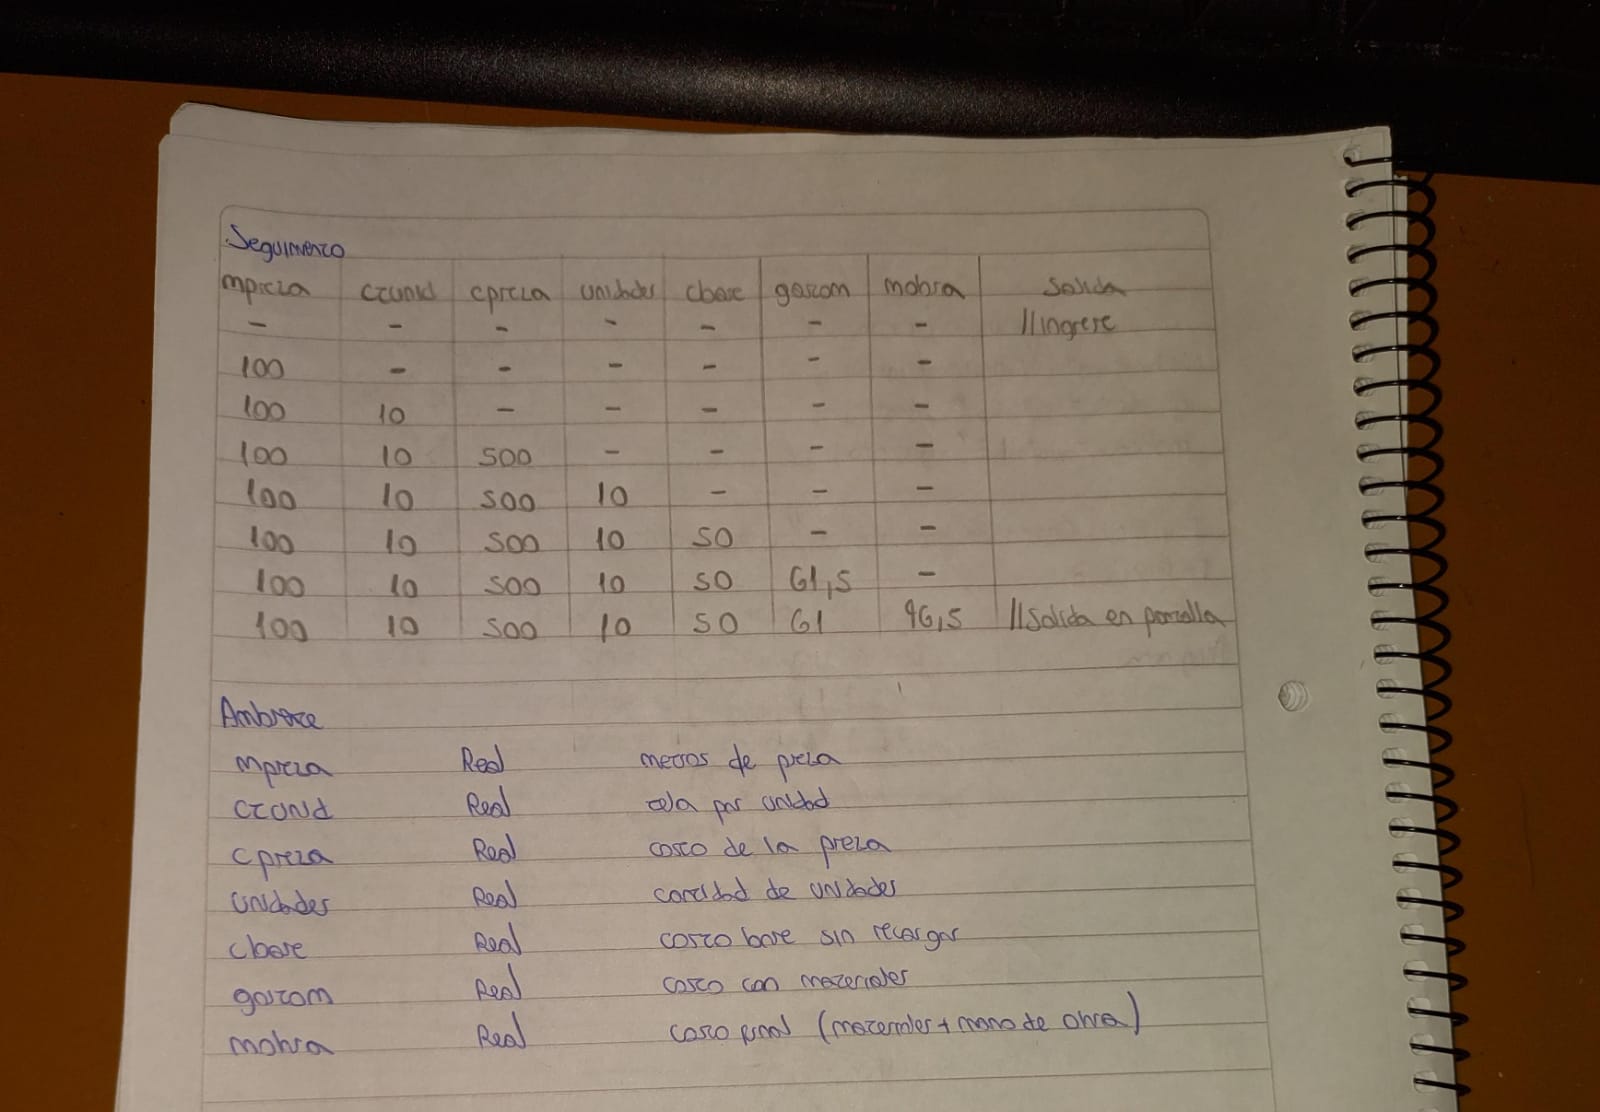 Seguimiento
mpieza ctunid cpieza unidades cbase gastom mobra Salida
- - - - - - - //ingrese
100 - - - - - -
100 10 - - - - -
100 10 500 - - - -
100 10 500 10 - - -
100 10 500 10 50 - -
100 10 500 10 50 61,5 -
100 10 500 10 50 61 96,5 //Salida en pantalla
Ambiente
mpieza Real metros de pieza
ctunid Real tela por unidad
cpieza Real costo de la pieza
unidades Real cantidad de unidades
cbase Real costo base sin recargar
gastom Real costo con materiales
mobra Real costo final (materiales + mano de obra)